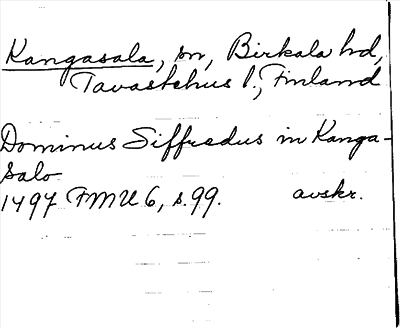 Kangasala, sn, Birkala hd,
Tavastehus l., Finland
Dominus Siffredus in Kanga-
salo
1497 FMU 6, s. 99. avskr.